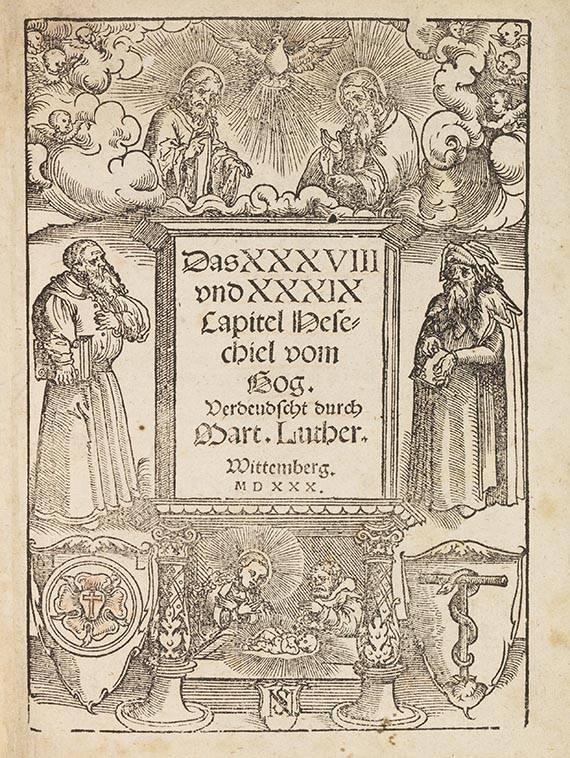 Das XXXVIII
vnd XXXIX
Capitel Hese⸗
chiel vom
Gog.
Verdeudscht durch
Mart. Luther.
Wittemberg.
M D XXX.